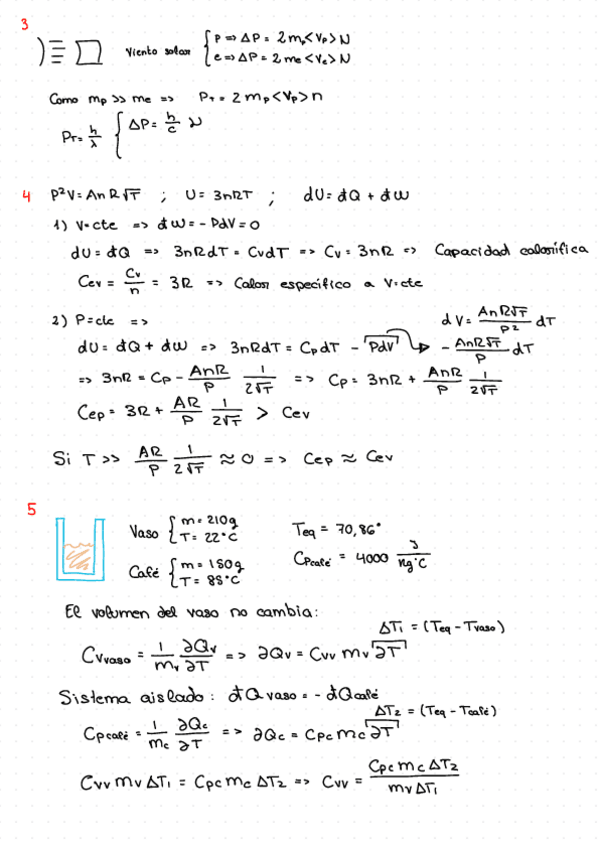 3
Viento solar { p => ΔP = 2 mp <Vp> N
e => ΔP = 2 me <Ve> N
Como mp >> me => PT = 2 mp <Vp> n
PT = h/λ { ΔP = h/c ν
4 P²V = AnR√T ; U = 3nRT ; dU = đQ + đW
1) V=cte => đW = - PdV = 0
dU = đQ => 3nRdT = CvdT => Cv = 3nR => Capacidad calorífica
Cev = Cv/n = 3R => Calor específico a V=cte
2) P=cte => dV = AnR√T/P² dT
dU = đQ + đW => 3nRdT = CpdT - PdV -> - AnR√T/P dT
=> 3nR = Cp - AnR/P 1/2√T => Cp = 3nR + AnR/P 1/2√T
Cep = 3R + AR/P 1/2√T > Cev
Si T >> AR/P 1/2√T ≈ 0 => Cep ≈ Cev
5
Vaso { m = 210g Teq = 70,86°
T = 22°C
Café { m = 150g CPcafé = 4000 J/kg°C
T = 85°C
El volumen del vaso no cambia:
ΔT1 = (Teq - Tvaso)
Cvvaso = 1/mv ∂Qv/∂T => ∂Qv = Cvv mv ∂T
Sistema aislado: đQvaso = - đQcafé
ΔT2 = (Teq - Tcafé)
Cpcafé = 1/mc ∂Qc/∂T => ∂Qc = Cpc mc ∂T
Cvv mv ΔT1 = Cpc mc ΔT2 => Cvv = Cpc mc ΔT2/mv ΔT1